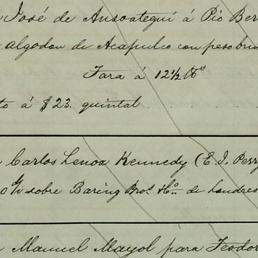 José de Ansoategui á Pio Ber
algodon de Acapulco con peso bru
Tara á 12½ lbs
to á $23. quintal
Carlos Lenox Kennedy (E. J. Perry
0 d/v sobre Baring Bros. & Co. de Londres
Manuel Mayol para Teodor